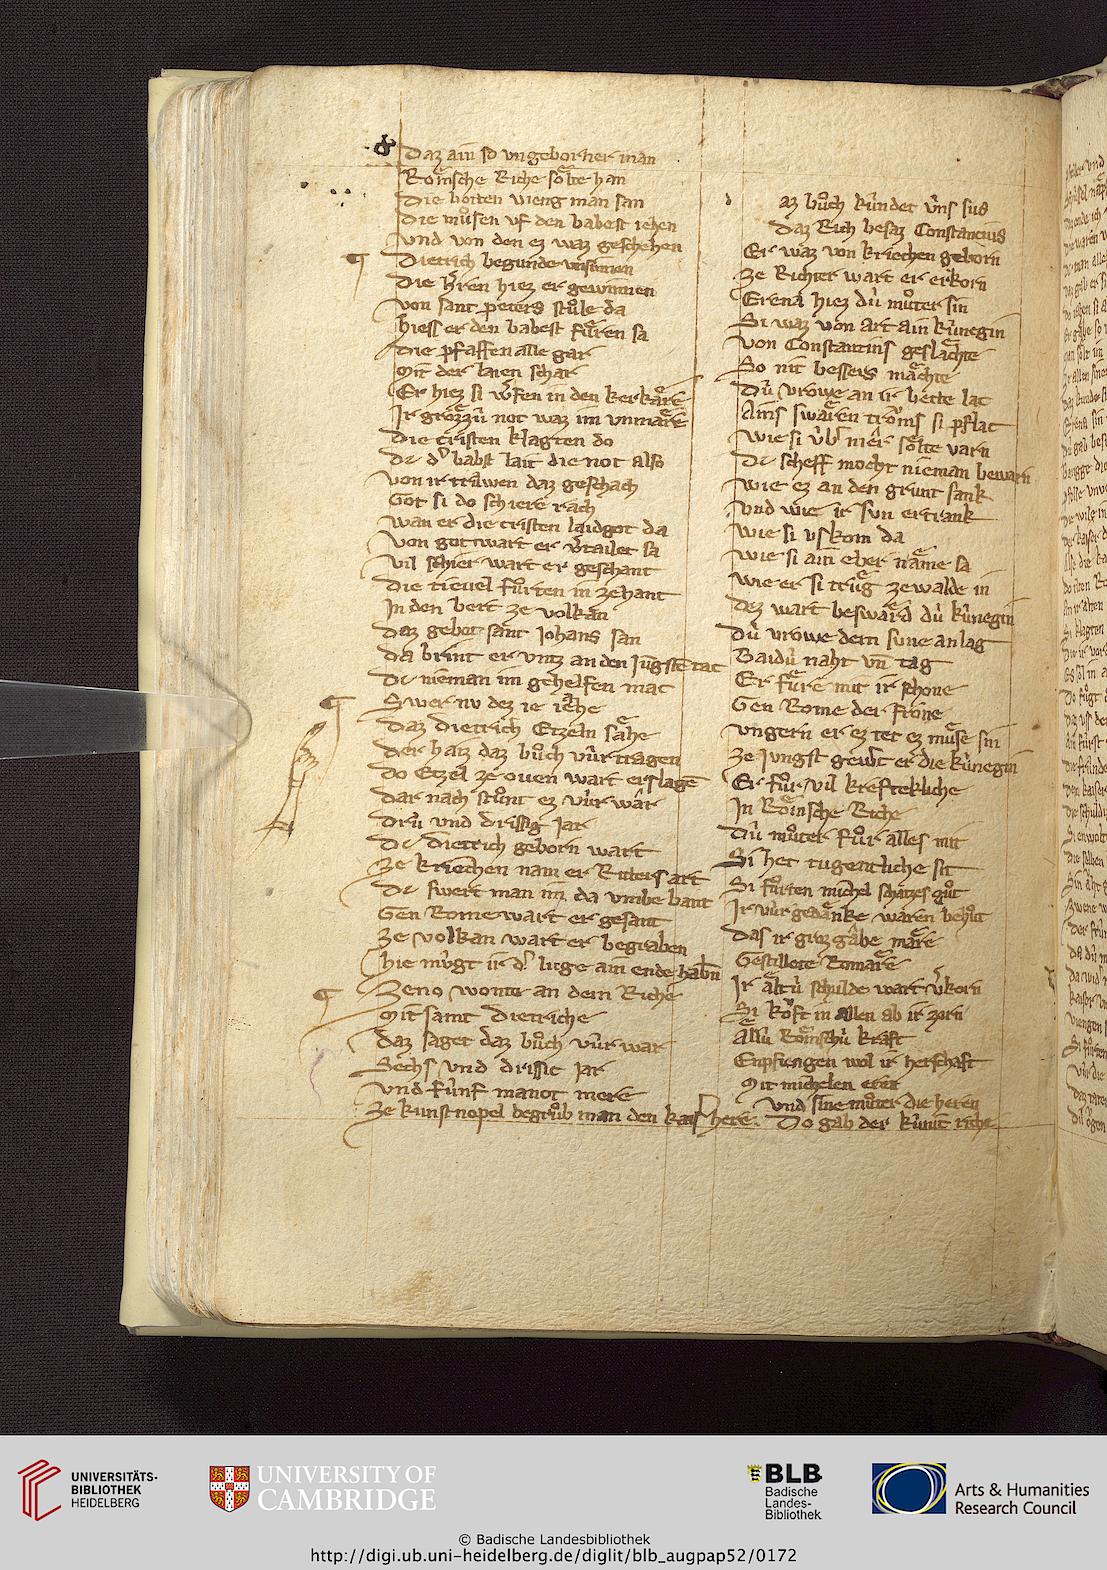 Daz ain so vngeborner man
Roͤmsche Riche soͤlte han
Die botten vieng man san
Die muͤsen vf den babest iehen
Vnd von den ez waz geschehen
Dietrich begunde
Die hˀren hiez er gewinnen
Von sant peters stuͦle da
hiess er den babest fuͤren sa
Die pfaffen alle gar
Mit der laien schar
Er hiez si wˀfen in den kerkaͤre
Ir grozzuͥ not waz im vnmaͤre
Die cristen klagten do
Dc dˀ babst lait die not also
Von ir truͥwen daz geschach
Got si do schiere rach
Wan er die cristen laidgot da
Von got wart er vˀtailet sa
Vil schier wart er geschant
Die tieuel fuͦrten in zehant
In den berk ze volkan
Daz gebot sant Johans san
Da brint er vntz an den Jungsten tac
Dc nieman im gehelfen mac
Swer nv dez ie iaͤhe
Daz Dietrich Etzeln saͤhe
Der haiz daz buͦch vuͥr tragen
Do Etzel ze ouen wart erslagē
Dar nach stuͦnt ez vuͥr war
Druͥ vnd drissig Jar
Dc Dietrich geborn wart
Ze kriechen nam er Ritters art
Dc swert man im da vmbe bant
Gen Rome wart er gesant
Ze volkan wart er begraben
hie muͥgt ir dˀ luge ain ende habn̄
Zeno wonte an dem Riche
Mit samt Dietriche
Daz saget daz buͦch vuͥr war
Sechs vnd drissic Jar
Vnd fuͥnf manot mere
Ze kunstnopel begruͦb man den kaisˀ here.
d az buͦch kuͥndet vˀns sus
Daz Rich besaz Constancius
Er waz von kriechen geborn
Ze Richter wart er erkorn
Erena hiez duͥ muͦter sin
Si waz von art ain kuͥnegin
Von Constantins geslaͤchte
So nit bessers maͤchte
Duͥ vrowe an ir bette lac
Ains swaͤren troͮms si pflac
Wie si vˀbˀ mer soͤlte varn
Dc scheff mocht nieman bewarn
Wie ez an den grunt sank
Vnd wie ir sun ertrank
Wie si vskom da
Wie si ain eber naͤme sa
Wie er si truͤg ze walde in
Dez wart beswaͤrd duͥ kuͥnegin
Duͥ vrowe dem sune an lag
Baiduͥ naht vn̄ tag
Er fuͤre mit ir schone
Gen Rome der frone
Vngern er ez tet ez muͤse sin
Ze Jungst gewˀt er die kuͥnegin
Er fuͦr vil kreftekliche
In Roͤmsche Riche
Duͥ muͦter fuͦr alles mit
Si het tugentliche sit
Si fuͦrten michel schatzes guͦt
Ir vuͥr gedaͤnke waren behuͦt
Das ir groz gaͤbe maͤre
Gestillete Romaͤre
Ir altuͥ schulde wart vˀkorn
Si koͮft in allen ab ir zorn
Alluͥ Roͤmschuͥ kraft
Enpfiengen wol ir herschaft
Mit michelen eren
Vnd sine muͦter die heren
Do gab der kuͥnic riche
UNIVERSITÄTS-
BIBLIOTHEK
HEIDELBERG
UNIVERSITY OF
CAMBRIDGE
BLB
Badische
Landes-
Bibliothek
Arts & Humanities
Research Council
© Badische Landesbibliothek
http://digi.ub.uni-heidelberg.de/diglit/blb_augpap52/0172